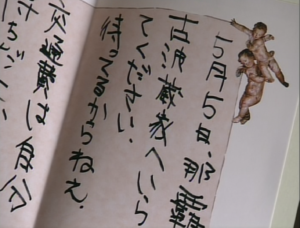 5月5日.那覇
古波蔵家へいら
てください.
待ってるからねえ.
交通費は自分